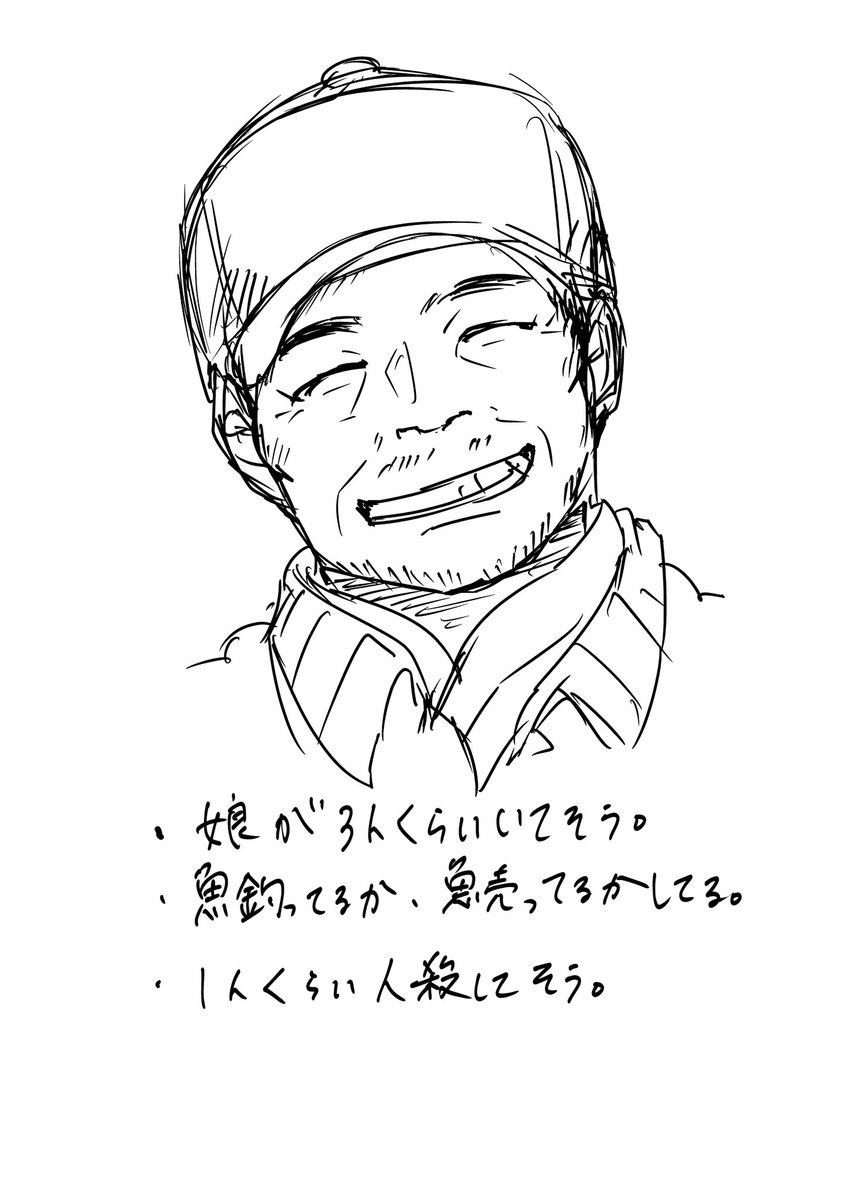 ・娘が3人くらいいてそう。
・魚釣ってるか、魚売ってるかしてる。
・1人くらい人殺してそう。